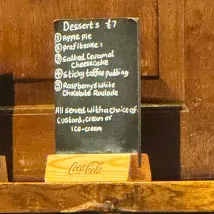 Dessert's £7
① Apple pie
② profiteroles
③ Salted Caramel
Cheesecake
④ Sticky toffee pudding
⑤ Raspberry & White
Chocolate Roulade
All served with a choice of
Custard, cream or
ice-cream
Coca-Cola